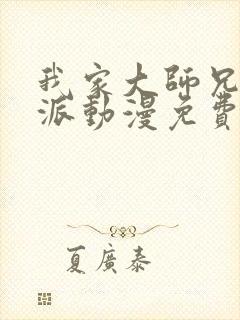 我家大師兄
派動漫免費
夏廣泰